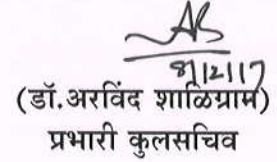 8/12/17
(डॉ.अरविंद शाळिग्राम)
प्रभारी कुलसचिव